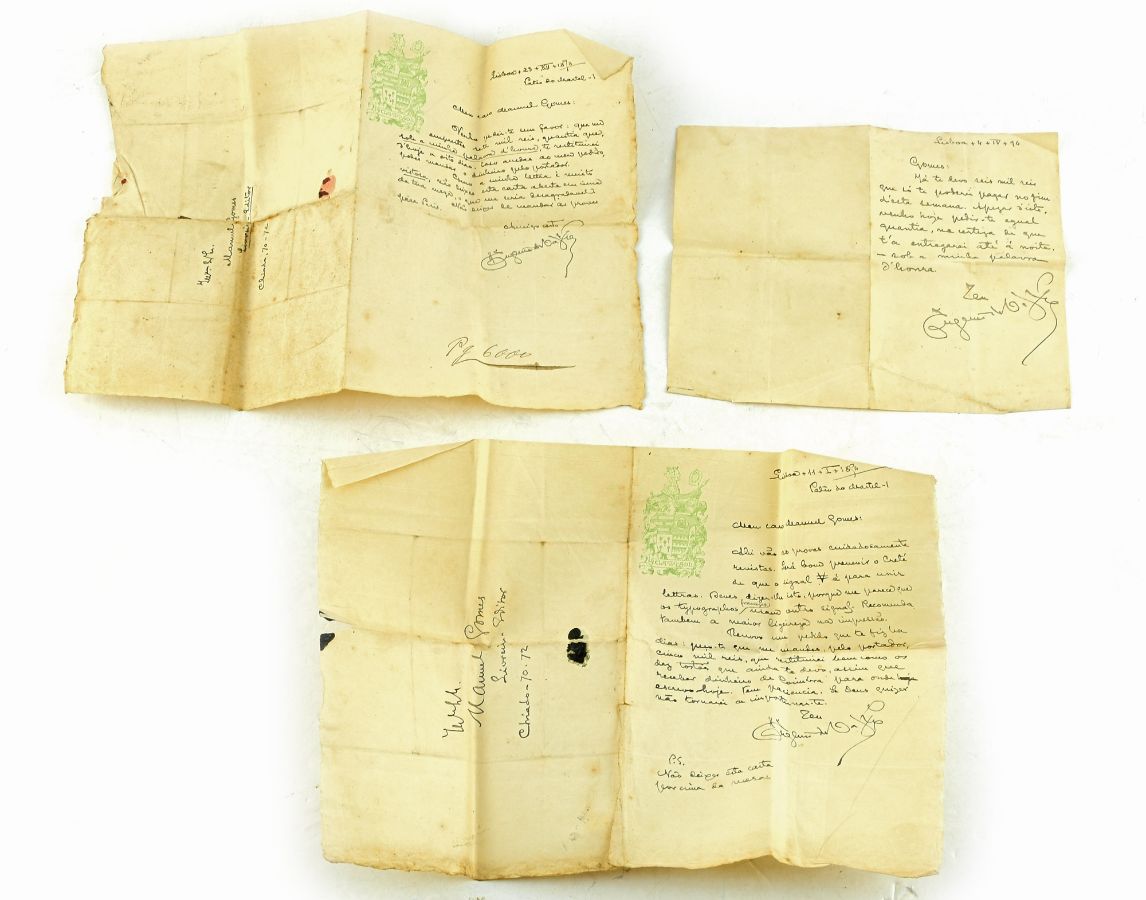 Lisboa + 23 + XII + 1890
Pateo do Martel - 1
Meu caro Manuel Gomes:
Venho pedir-te um favor: que me
emprestes seis mil reis, quantia que,
sob a minha palavra d'honra, te restituirei
d'hoje a oito dias. Caso accedas ao meu pedido,
podes mandar o dinheiro pelo portador.
Como a minha lettra é muito
vistosa, não deixes esta carta aberta em cima
da tua meza, o que me seria desagradavel
para Paris. Não deixes de mandar as provas
Amigo certo
Eugenio de Castro
Pg 6000
Illmo Snr.
Manuel Gomes
Livreiro-Editor
Chiado, 70-72
Lisboa + 4 + IV + 94
Gomes:
Já te devo seis mil reis
que só te poderei pagar no fim
d'esta semana. Apezar d'isto,
venho hoje pedir-te egual
quantia, na certeza de que
t'a entregarei até á noite,
- sob a minha palavra
d'honra.
Teu
Eugenio de Castro
Lisboa + 11 + I + 1890
Pateo do Martel - 1
Meu caro Manuel Gomes:
Ahi vão as provas cuidadosamente
revistas. Será bom prevenir o Creté
de que o signal é para unir
lettras. Deves dizer-lhe isto, porque me parece que
os typographos francezes usam outro signal. Recomenda
tambem a maior ligeireza na impressão.
Renovo um pedido que te fiz ha
dias: peço-te que me mandes, pelo portador,
cinco mil reis, que restituirei bem como os
dez tostões que ainda te devo, assim que
receber dinheiro de Coimbra para onde
escrevo hoje. Tem paciencia. Se Deus quizer
não tornarei a importunar-te.
Teu
Eugenio de Castro
P.S.
Não deixes esta carta
por cima da meza
Manuel Gomes
Livreiro-Editor
Chiado-70-72